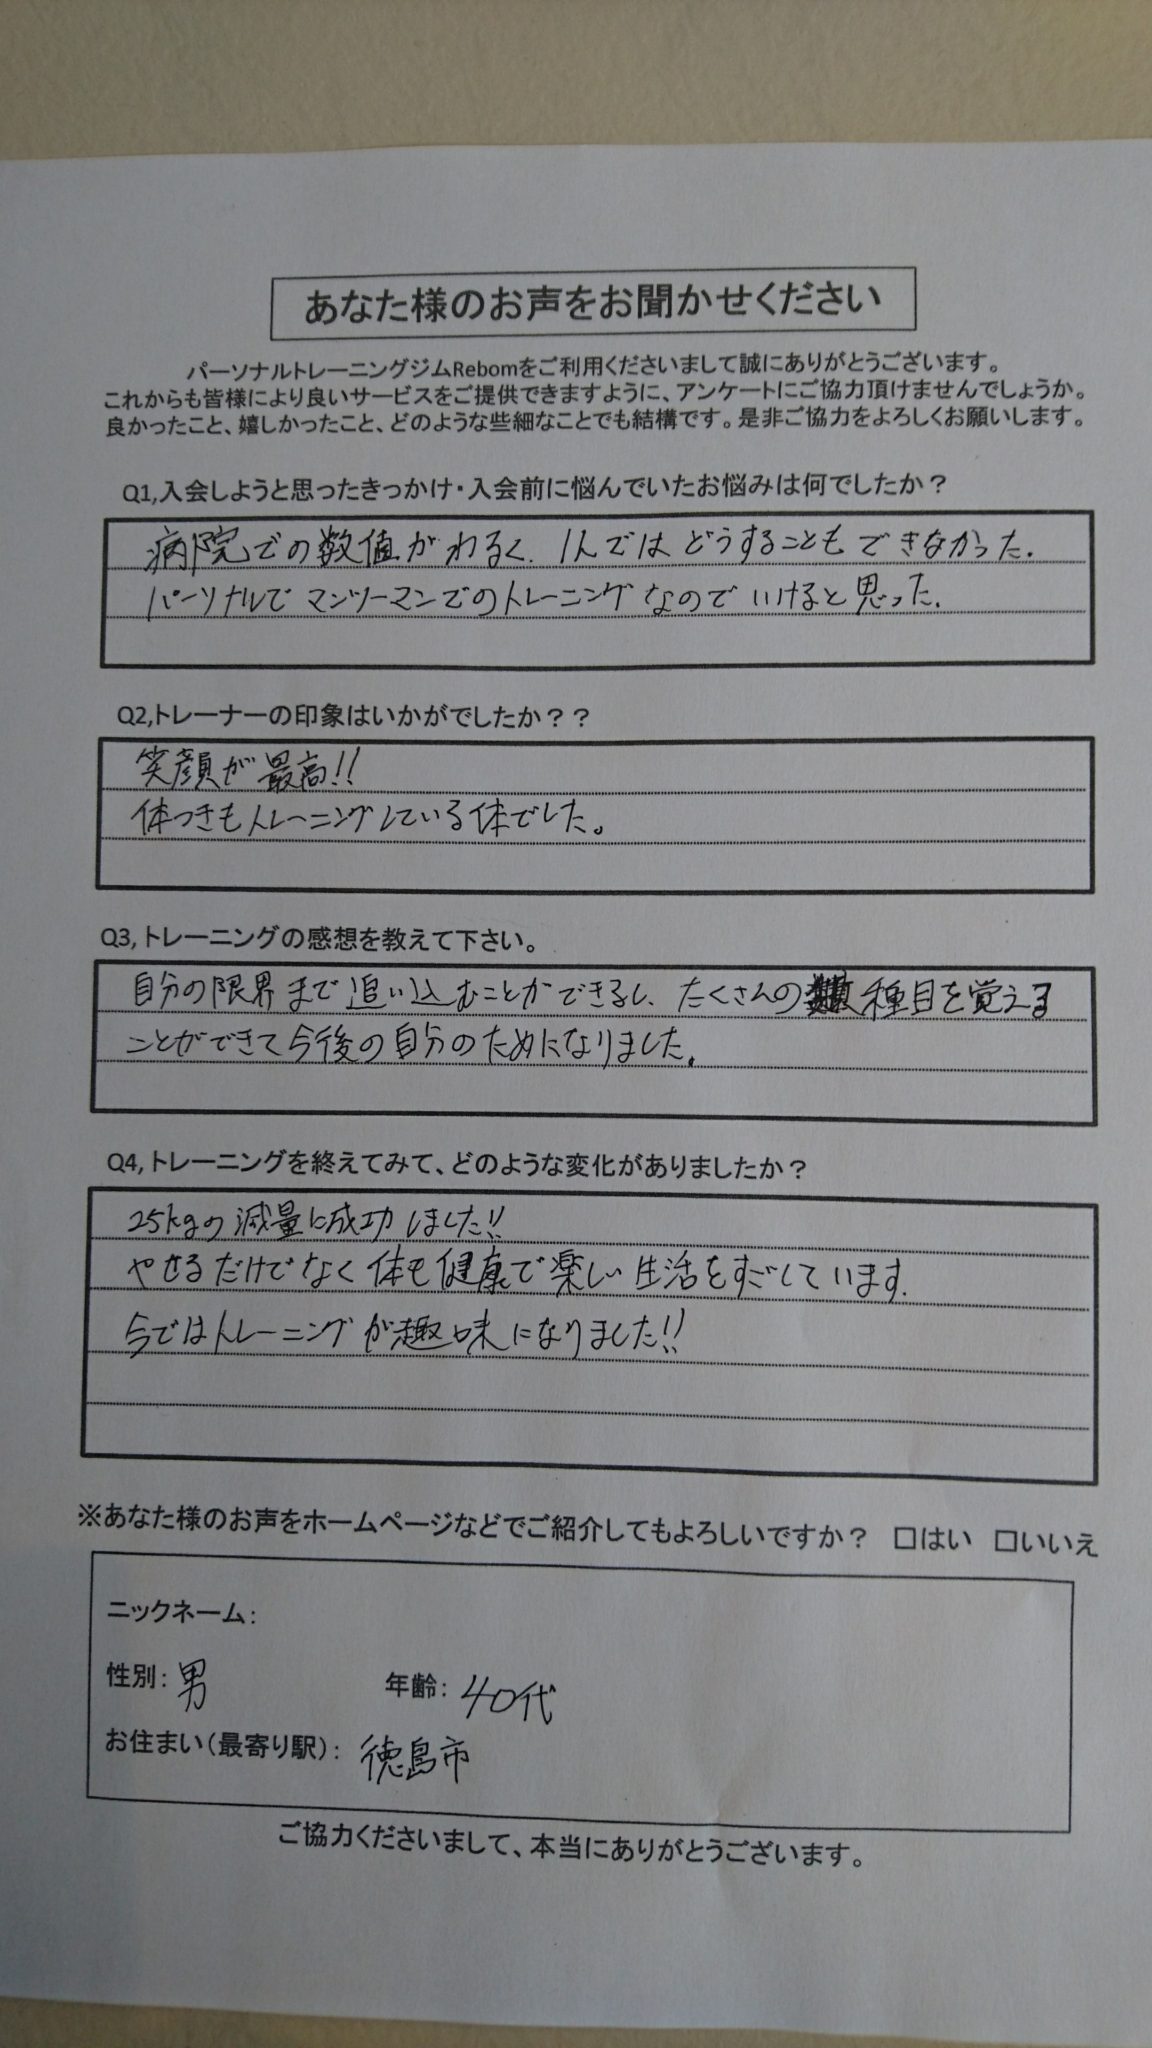 あなた様のお声をお聞かせください
パーソナルトレーニングジムRebomをご利用くださいまして誠にありがとうございます。
これからも皆様により良いサービスをご提供できますように、アンケートにご協力頂けませんでしょうか。
良かったこと、嬉しかったこと、どのような些細なことでも結構です。是非ご協力をよろしくお願いします。
Q1,入会しようと思ったきっかけ・入会前に悩んでいたお悩みは何でしたか？
病院での数値がわるく、1人ではどうすることもできなかった.
パーソナルでマンツーマンでのトレーニングなのでいけると思った.
Q2,トレーナーの印象はいかがでしたか？？
笑顔が最高!!
体つきもトレーニングしている体でした。
Q3,トレーニングの感想を教えて下さい。
自分の限界まで追い込むことができるし、たくさんの種目を覚える
ことができて今後の自分のためになりました.
Q4,トレーニングを終えてみて、どのような変化がありましたか？
25kgの減量に成功しました!!
やせるだけでなく体も健康で楽しい生活をすごしています.
今ではトレーニングが趣味になりました!!
※あなた様のお声をホームページなどでご紹介してもよろしいですか？ □はい □いいえ
ニックネーム：
性別：男 年齢：40代
お住まい（最寄り駅）：徳島市
ご協力くださいまして、本当にありがとうございます。